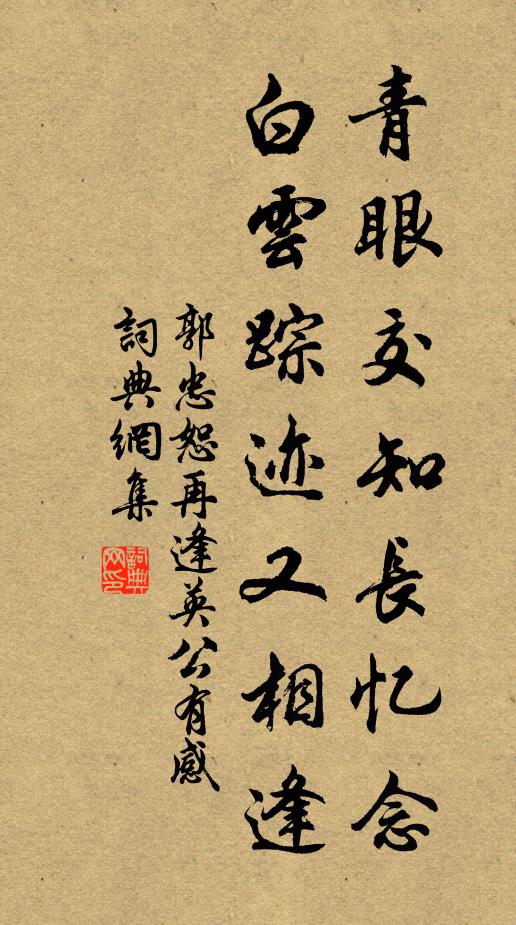 青眼交知長忆念
白雲踪迹又相逢
郭忠恕再逢英公有感
詞典網集
詞典网印